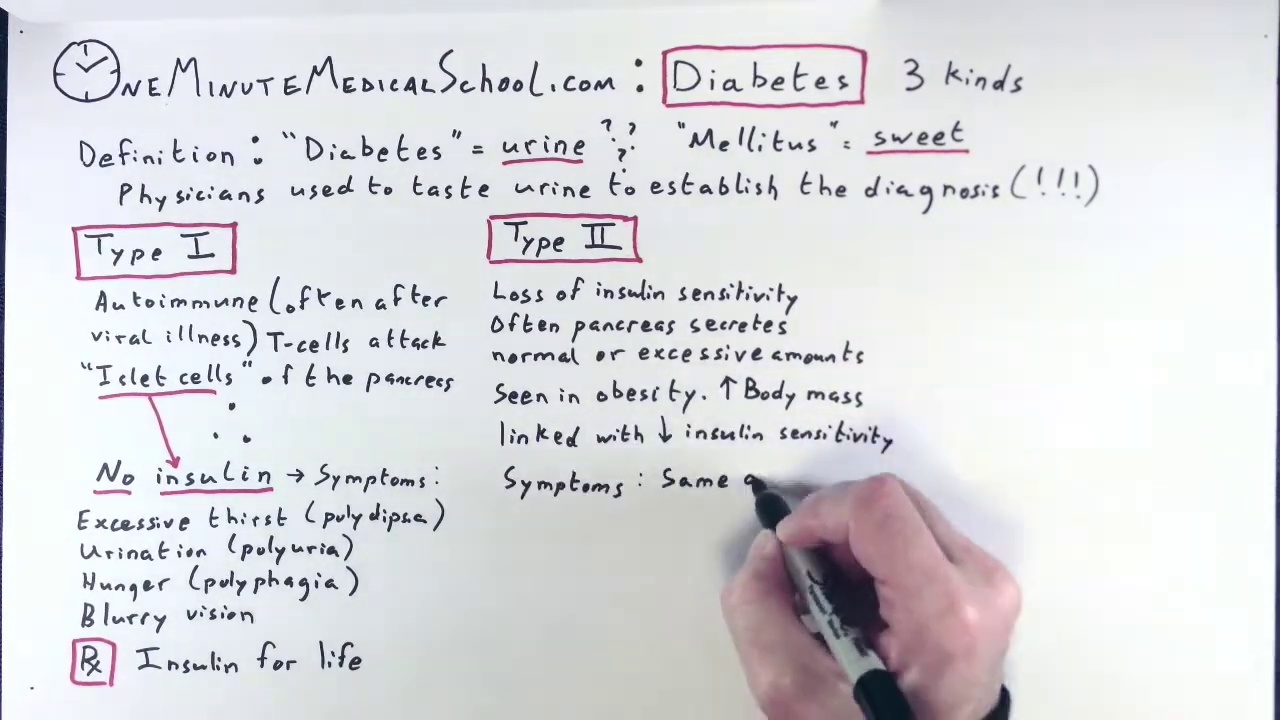 OneMinuteMedicalSchool.com : Diabetes 3 kinds
Definition : "Diabetes" = urine ??? "Mellitus" = sweet
Physicians used to taste urine to establish the diagnosis (!!!)
Type I
Autoimmune (often after
viral illness) T-cells attack
"Islet cells" of the pancreas
No insulin → Symptoms:
Excessive thirst (polydipsa)
Urination (polyuria)
Hunger (polyphagia)
Blurry vision
Rx Insulin for life
Type II
Loss of insulin sensitivity
Often pancreas secretes
normal or excessive amounts
Seen in obesity. ↑ Body mass
linked with ↓ insulin sensitivity
Symptoms : Same a